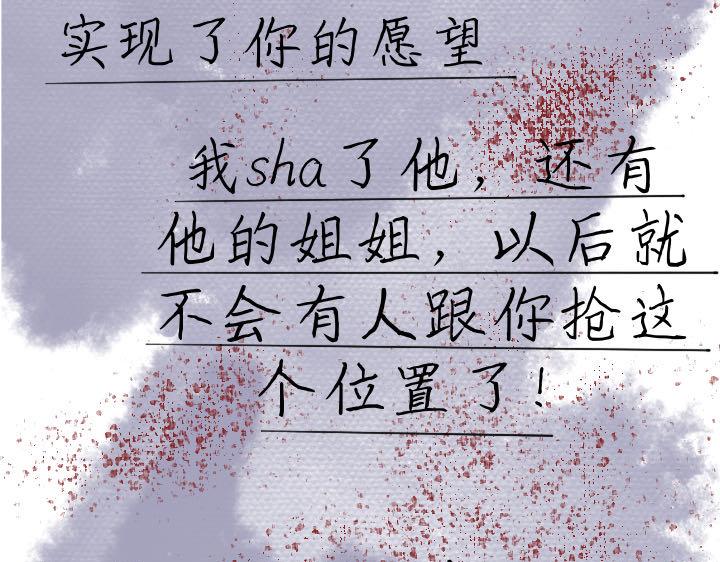 实现了你的愿望
我sha了他，还有
他的姐姐，以后就
不会有人跟你抢这
个位置了！